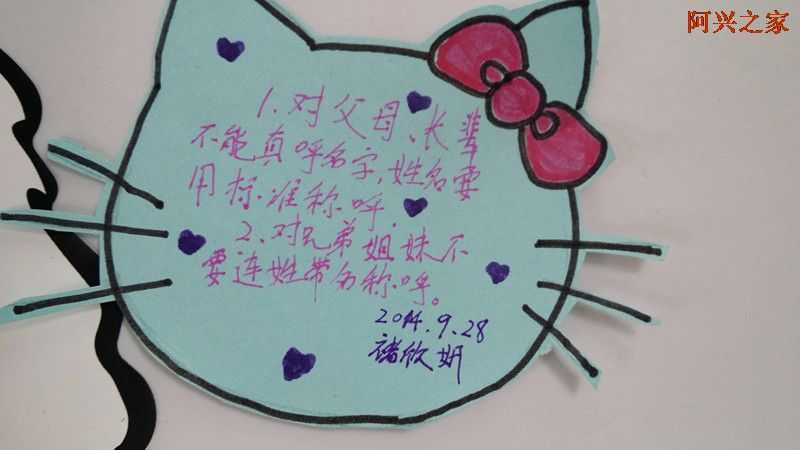 阿兴之家
1. 对父母、长辈
不能真呼名字,姓名要
用标准称呼.
2、对兄弟姐妹不
要连姓带名称呼。
2014.9.28
褚欣妍